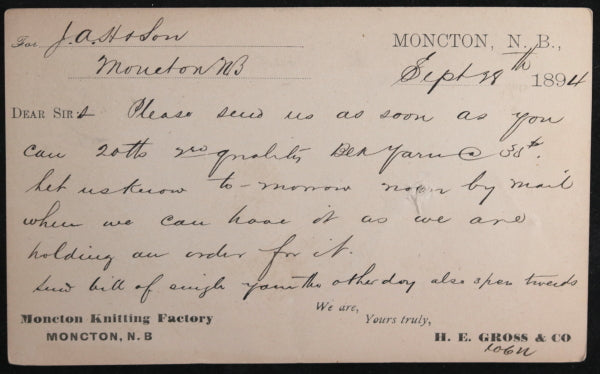 For J. A. H & Son
Moncton NB
MONCTON, N. B.,
Sept 28th 1894
DEAR SIRs Please send us as soon as you
can 20 lbs 2nd quality Blk Yarn @
Let us know to-morrow noon by mail
when we can have it as we are
holding an order for it.
Send bill of single yarn the other day also 3 pcs tweeds
We are,
Yours truly,
Moncton Knitting Factory
MONCTON, N. B
H. E. GROSS & CO